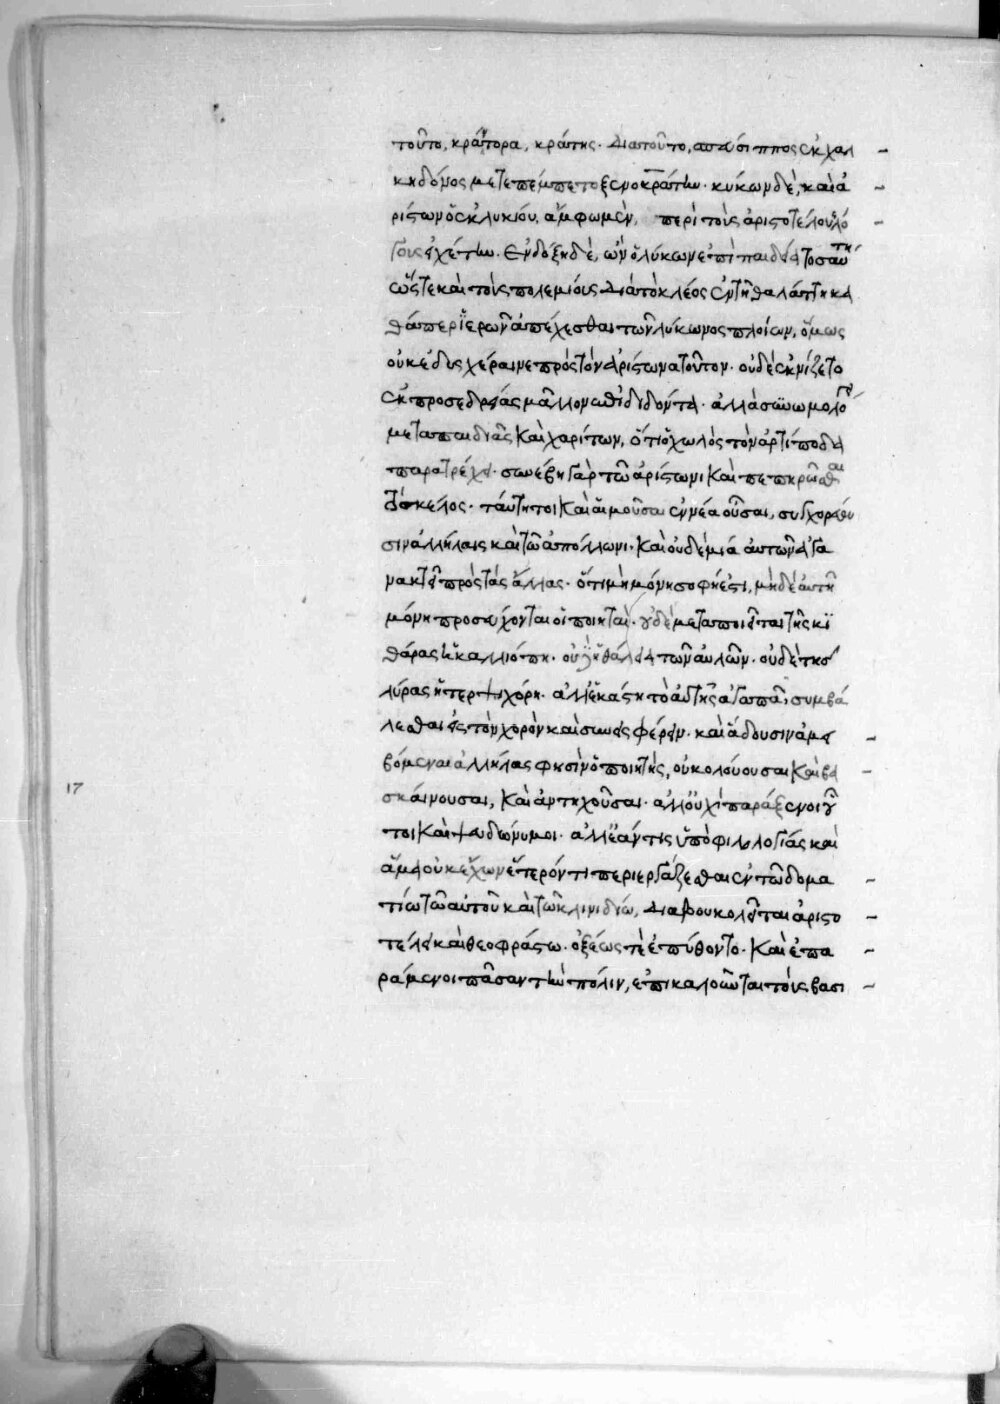 τοῦτο, κράντορα, κράτης. διατοῦτο, σπεύσιππος ἐκ χαλ
κηδόνος μετεπέμπετο ξενοκράτην. κύκων δὲ, καὶ ἀ
ρίστων ὃς ἐκ λυκίου, ἄμφω μὲν, περὶ τοὺς ἀριστοτέλους λό
γους ἐχέτην. ἐνδόξη δὲ, ὢν ὁ λύκων ἐπὶ παιδείᾳ τοσαύτη
ὥστε καὶ τοῖς πολεμίοις διὰ τὸ κλέος ἐν τῇ θαλάττη κα
θάπερ ἱερῶν ἀπέχεσθαι τῶν λύκωνος πλοίων, ὅμως
οὐκ ἐδυσχέραινε πρὸς τὸν ἀρίστωνα τοῦτον. οὐδὲ ἐκνίζετο
ἐκ προσεδρείας μᾶλλον ἐπιδιδόντα. ἀλλὰ συνωμολόγει
μετὰ παιδιᾶς καὶ χαρίτων, ὅτι ὁ χωλὸς τὸν ἀρτίποδα
παρατρέχει. συνέβη γὰρ τῶ ἀρίστωνι καὶ πεπηρῶσθαι
τὸ σκέλος. ταύτη τοι καὶ αἱ μοῦσαι ἐννέα οὖσαι, συγχορεύου
σιν ἀλλήλαις καὶ τῶ ἀπόλλωνι. καὶ οὐδεμιά αὐτῶν ἀγα
νακτεῖ πρὸς τὰς ἄλλας. ὅτι μὴ μόνη σοφή ἐστι, μηδὲ αὐτῆ
μόνη προσεύχονται οἱ ποιηταί. οὐδὲ μεταποιεῖται τῆς κι
θάρας ἡ καλλιόπη. οὐχ ἡ θάλεια τῶν αὐλῶν. οὐδὲ τῆς
λύρας ἡ τερψιχόρη. ἀλλ' ἑκάστη τὸ αὑτῆς ἀγαπᾶ, συμβά
λεσθαι εἰς τὸν χορὸν καὶ συνεισφέρειν. καὶ ἄδουσιν ἀμει
βόμεναι ἀλλήλας φησὶν ὁ ποιητής, οὐ κολούουσαι καὶ βα
σκαίνουσαι, καὶ ἀντηχοῦσαι. ἀλλ' οὐχὶ παράξενοι οὗ
τοι καὶ ψευδώνυμοι. ἀλλ' ἐάν τις ὑπὸ φιλολογίας καὶ
ἅμα οὐκ ἔχων ἕτερόν τι περιεργάζεσθαι ἐν τῶ δωμα
τίω τῶ αὑτοῦ καὶ τῶ κλινιδίω, διαβουκολεῖται ἀριστο
τέλει καὶ θεοφράστω. ὀξέως τε ἐπύθοντο. καὶ ἐπα
ράμενοι πᾶσαν τὴν πόλιν, ἐπικαλοῦνται τοῖς βασι
17